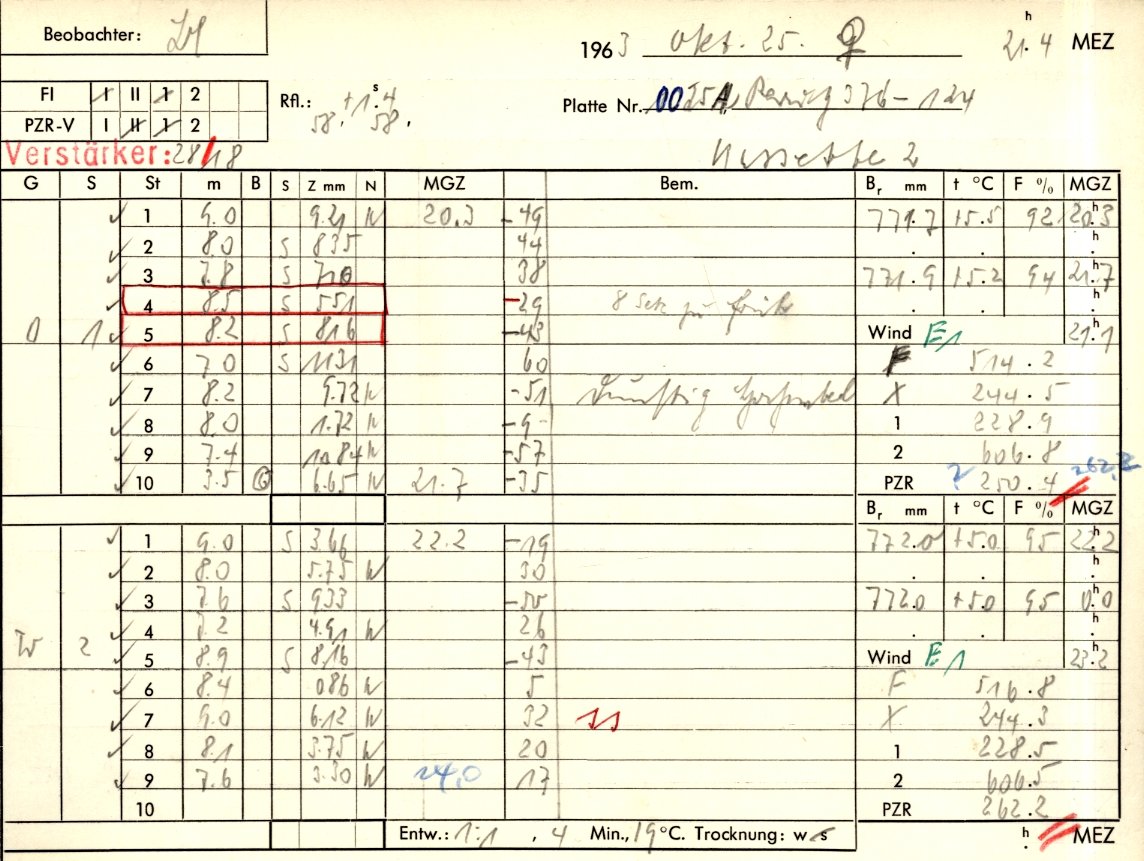 Beobachter:
1963 Okt. 25. ♀ 21.4 h MEZ
FI I II 1 2
PZR-V I II 1 2
Rfl.: +1.4 s
58. 58.
Platte Nr. 376-124
Verstärker: 28/18
Kassette 2
G S St m B S Z mm N MGZ Bem. Br mm t °C F % MGZ
✓ 1 9.0 9.21 N 20.3 -49 771.7 +5.5 92 20.3 h
✓ 2 8.0 S 835 44 . . h
✓ 3 7.8 S 710 38 771.9 +5.2 94 21.7 h
✓ 4 8.5 S 551 -29 8 Sek zu früh . . h
O 1 ✓ 5 8.2 S 816 -43 Wind E1 21.1 h
✓ 6 7.0 S 1131 60 F 514.2
✓ 7 8.2 9.72 N -51 Dunstig X 244.5
✓ 8 8.0 1.72 N -9 1 228.9
✓ 9 7.4 10.84 N -57 2 606.8
✓ 10 3.5 6.65 N 21.7 -35 PZR ? 250.4 262.2
Br mm t °C F % MGZ
✓ 1 9.0 S 3.66 22.2 -19 772.0 +5.0 95 22.2 h
✓ 2 8.0 5.75 N 30 . . h
✓ 3 7.6 S 933 -50 772.0 +5.0 95 0.0 h
✓ 4 7.2 4.91 N 26 . . h
W 2 ✓ 5 8.9 S 8.16 -43 Wind E1 23.2 h
✓ 6 8.4 086 N 5 F 516.8
✓ 7 9.0 6.12 N 32 X 244.3
✓ 8 8.1 3.75 N 20 1 228.5
✓ 9 7.6 3.30 N 24,0 17 2 606.5
10 PZR 262.2
Entw.: 1:1 , 4 Min., 19 °C. Trocknung: w s h . MEZ